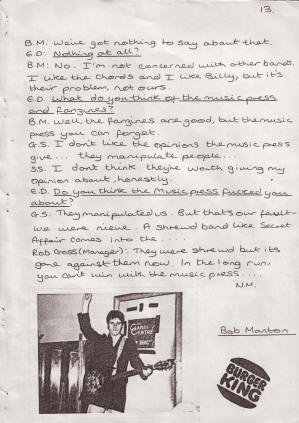 13.
B.M: We've got nothing to say about that.
E.D: Nothing at all?
B.M: No. I'm not concerned with other bands.
I like the Chords and I like Billy, but it's
their problem, not ours.
E.D. What do you think of the music press
and fanzines?
B.M. Well, the fanzines are good, but the music
press you can forget.
G.S. I don't like the opinions the music press
give... they manipulate people...
SS. I don't think they're worth giving my
opinion about, honestly.
E.D. Do you think the Music press fucked you
about?
G.S. They manipulated us. But that's our fault-
we were nieve. A shrewd band like Secret
Affair comes into the .....
Rob Cross (Manager): They were shrewd but its
gone against them now. In the long run,
you can't win with the music press....
N.M.
Bob Manton
BURGER
KING